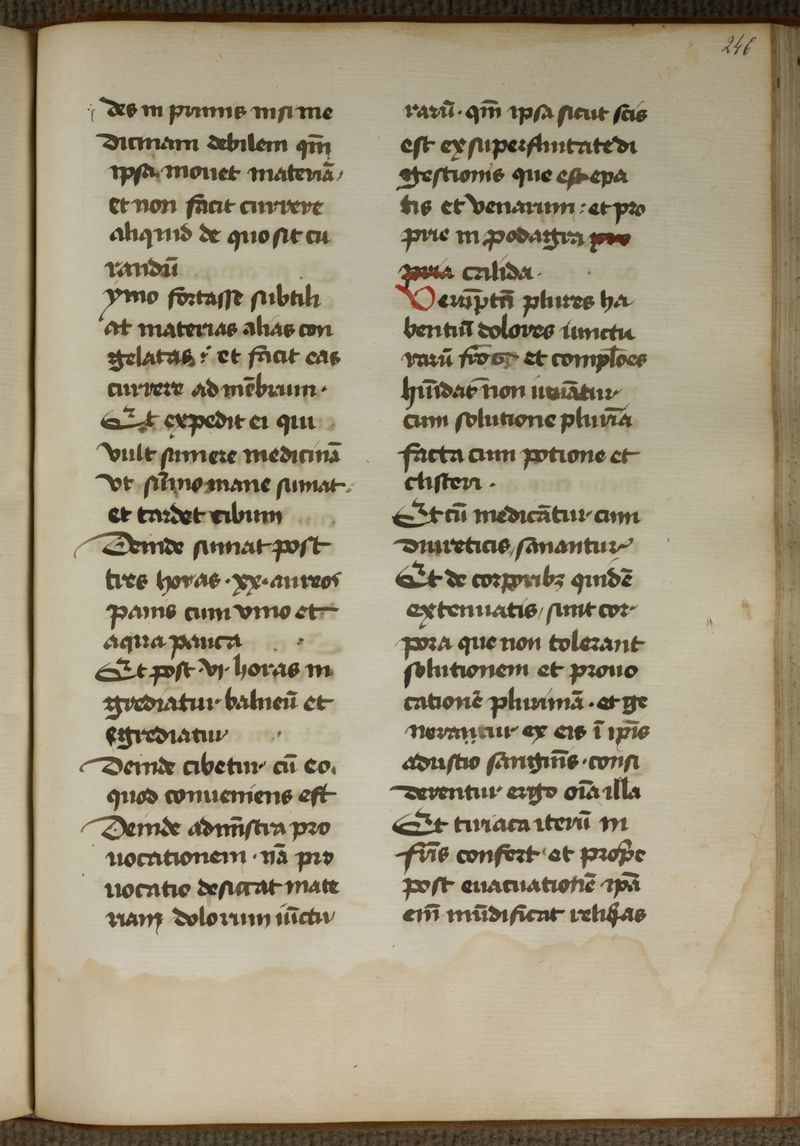 246
des in primis nisi me
dicinam debilem qm̄
ipsa mouet materiā
et non facit currere
aliquid de quo sit cu
randū
ymo fortasse subtili
at materias alias con
gelatas et facit eas
currere ad mēbrum ·
Et expedit ei qui
vult sumere medicinā
vt sūmo mane sumat
et tardet cibum
Deinde sumat post
tres horas · xx · aureos
panis cum vino et
aqua pauca
Et post · vj · horas in
grediatur balneū et
egrediatur
Deinde cibetur cū eo
quod conueniens est
Deinde adm̄istra pro
uocationem · nā pro
uocatio desiccat mate
riam dolorum iūctu
rarū · qm̄ ipsa sicut scis
est ex superfluitate di
gestionis que est epa
tis et venarum : et pro
prie in podagra
calida ·
Verūptn̄ plures ha
bentiū dolores iunctu
rarū et
non iuuātur
cum solutione plurīa
facta cum potione et
clisteri ·
Et cū medicātur cum
diureticis / sanantur
Et de corporibꝫ quidē
extenuatis / sunt cor
pora que non tolerant
solutionem et prouo
cationē plurimā · et ge
nerantur ex eis ī ip̄is
adustio sanguīs · consi
derentur ergo oīa illa
Et tiriaca iterū in
confert · et prop̄e
post euacuationē · ip̄a
em̄ mūdificat reliq̄as